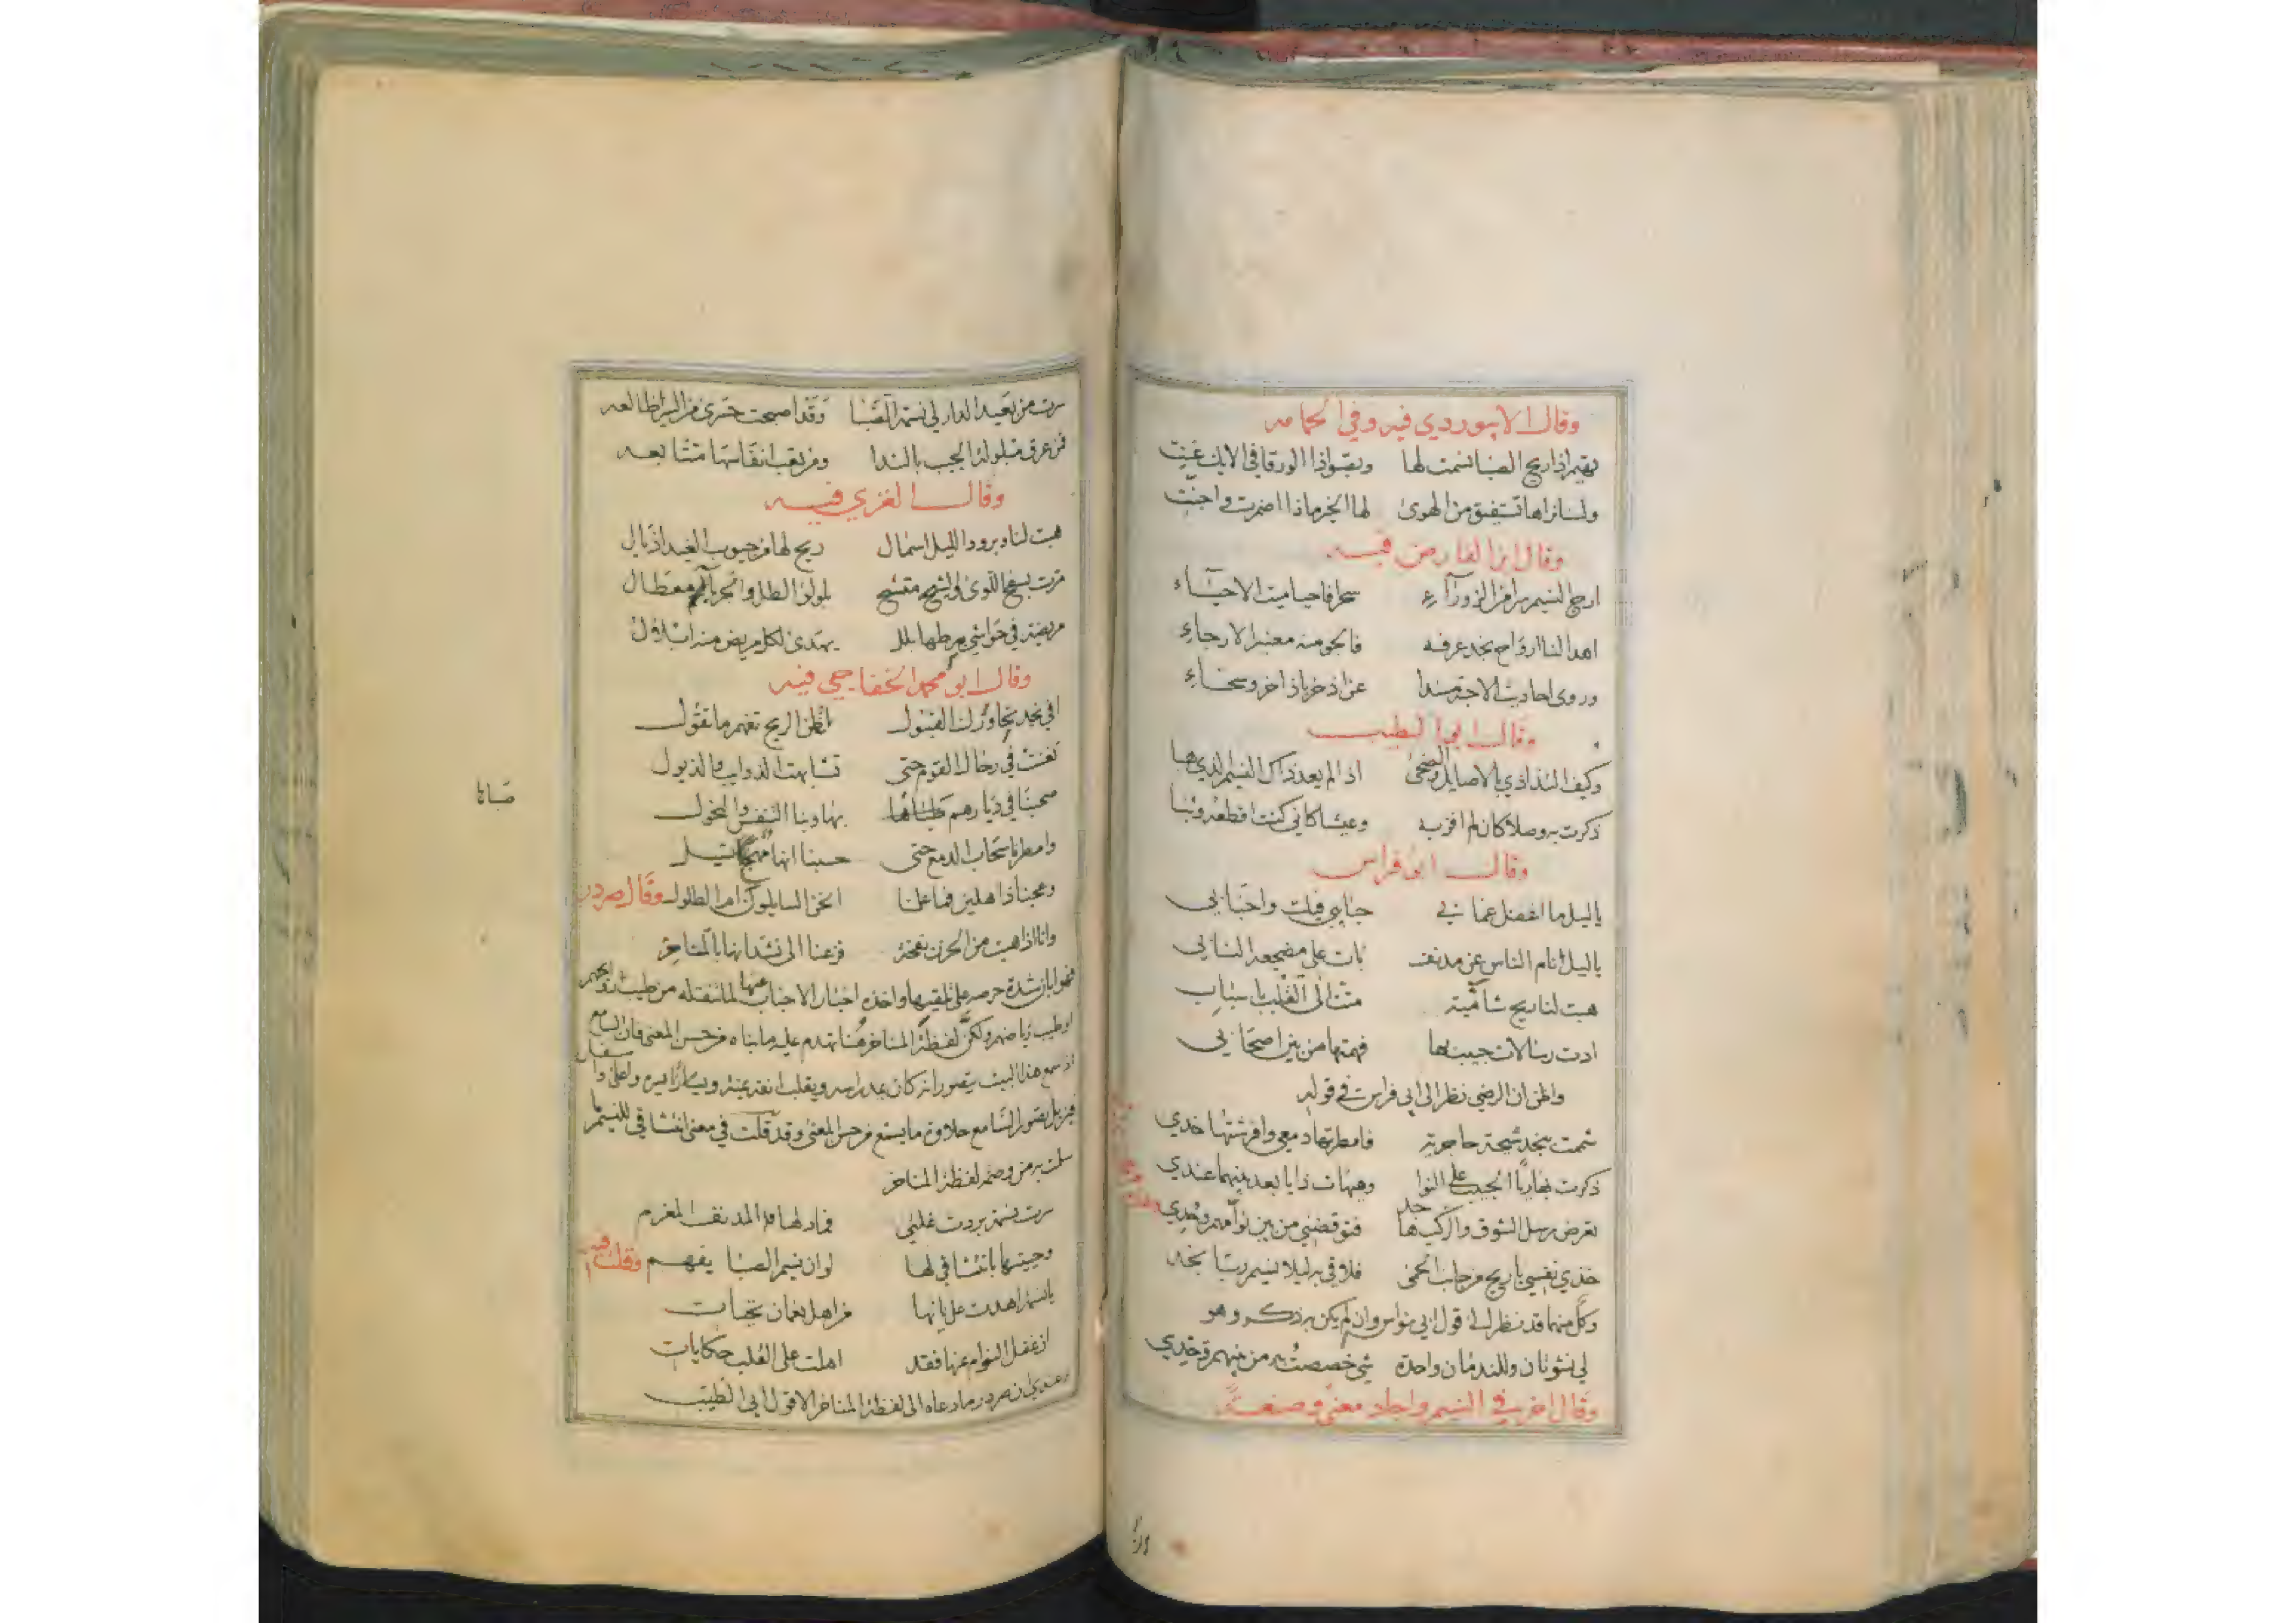 وقال الابيوردي فيه وفي الحمامه
يهيم اذا ريح الصبا نسمت لها ويصبو اذا الورقا في الايك غنت
ولسنا نراها تستفيق من الهوى لها الخير ماذا اضمرت واجنت
وقال ابن الفارض فيه
ارج النسيم سرا من الزوراء سحرا فاحيا ميت الاحياء
اهدا لنا ارواح نجد عرفه فالجو منه معنبر الارجاء
وروى احاديث الاحبة مسندا عن اذخر باذاخر وسخاء
وقال ابو الطيب
وكيف التذاذي بالاصايل والضحى اذا لم يعد ذاك النسيم الذي هبا
ذكرت به وصلا كان لم افز به وعيشا كاني كنت اقطعه وثبا
وقال ابو فراس
ياليل ما اغفل عما بي حبايبي فيك واحبابي
ياليل نام الناس عن مدنف بات على مضجعه النابي
هبت لنا ريح شامية متت الى القلب باسباب
ادت رسالات حبيب لها فهمتها من بين اصحابي
واظن ان الرضي نظر الى ابي فراس في قوله
شممت بنجد شيحة حاجرية فامطرتها دمعي وافرشتها خدي
ذكرت بها ريا الحبيب على النوا وهيهات ذا يا بعد بينهما عندي
تعرض رسل الشوق والركب هاجد فتوقضني من بين نوامهم وحدي
خذي نفسي يا ريح من جانب الحمى فلاقي به ليلا نسيم ربا نجد
وكل منهما قد نظر الى قول ابي نواس وان لم يكن بذكر وهو
لي نشوتان وللندمان واحدة شي خصصت به من بينهم وحدي
وقال اخر في النسيم واجاد معنى وصنعة
سرت من بعيد الدار لي نسمة الصبا وقد اصبحت حسرى من السير ظالعه
فمن عرق مبلولة الجيب بالندا ومن تعب انفاسها متتابعه
وقال الغزي فيه
هبت لنا وبرود الليل اسمال ريح لها من جيوب الغيد اذيال
مرت بسفح اللوى والشيح متشح بلولؤ الطل والجرباء معطال
مريضة في حواشي مرطها بلل يهدى لكل مريض منه ابلال
وقال ابو محمد الخفاجي فيه
افي نجد تحاورك القبول اظن الريح تفهم ما تقول
تغنت في رحال القوم حتى تشابهت الذوايب والذيول
صحبنا في ديارهم صباها بها وبنا التنفس والنحول
صبانا
وامطرنا سحاب الدمع حتى حسبنا انها مهجات تسيل
وعجنا ذاهلين فما علمنا انحن السايلون ام الطلول وقال صردر
وانا اذا هبت من الحزن نفحة فزعنا الى نشدانها بالمناخر
فهو ابان شدة حرصه على تلقيها واخذه اخبار الاحباب عنها لما تنقله من طيب نفحهم
او طيب رياضهم ولكن لفظة المناخر هنا تهدم عليه ما بناه من حسن المعنى فان السامع
اذ سمع هذا البيت يتصور انه كان يمد راسه ويقلب انفه يمنة ويسارا
فيزيل تصور السامع حلاوة ما يسمع من حسن المعنى وقد قلت في معنى انتشاقي للنسيم ما
سلمت به من وصمة لفظة المناخر
سرت نسمة بردت غلتي فماد لها المدنف المغرم
وحييتها بانتشاقي لها لو ان نسيم الصبا يفهم وقلت فيه
يا نسيما اهدت على بانها من اهل نعمان تحيات
ان غفل النوام عنها فقد املت على القلب حكايات
وعندي ان صردر ما دعاه الى لفظة المناخر الا قول ابي الطيب